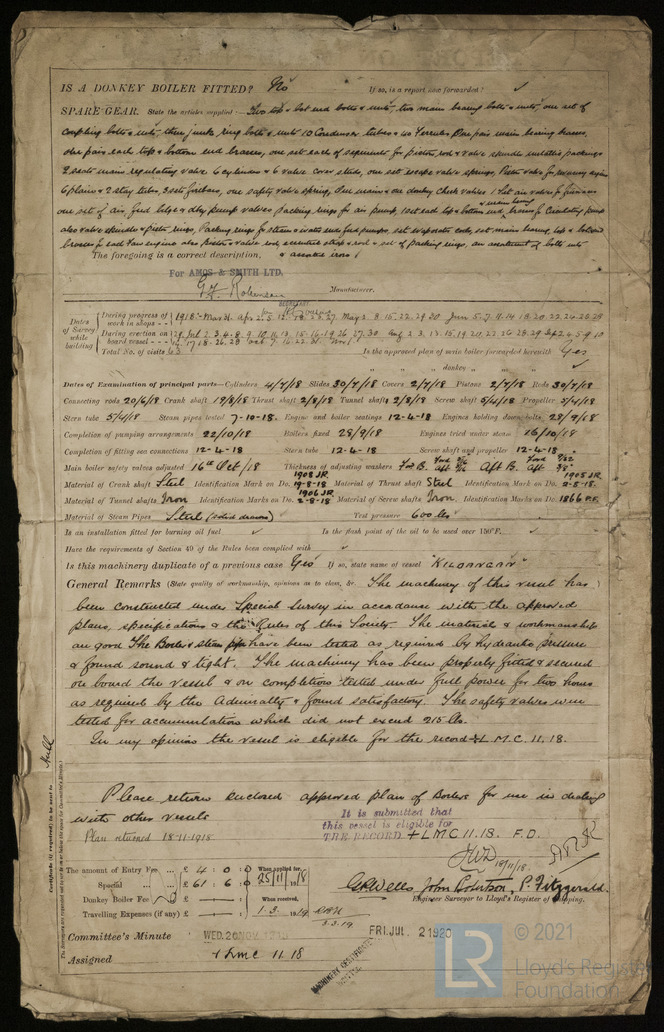 IS A DONKEY BOILER FITTED? No If so, is a report now forwarded? ✓
SPARE GEAR. State the articles supplied:— Two top & bot end bolts & nuts, two main bearing bolts & nuts, one set of
coupling bolts & nuts, three junk ring bolts & nuts 10 Condenser tubes & 40 Ferrules One pair main bearing brasses,
one pair each top & bottom end brasses, one set each of segments for piston rod & valve spindle metallic packings
2 seats main regulating valve 6 cylinder & 6 valve cover studs, one set escape valve springs, Piston valve for reversing engine
6 plain & 2 stay tubes, 3 sets firebars, one safety valve spring, One main & one donkey Check valves 1 Set air valves for furnaces
& main bearing
one set of air, feed bilge & dky pump valves Packing rings for air pump, 1 set each top & bottom end brasses for Circulating pump
also valve spindle & piston rings, Packing rings for steam & water ends feed pumps, set evaporator coils, set main bearing, top & bottom end
brasses for each Fan engine also Piston & valve rod, eccentric strap & rod & set of packing rings, an assortment of bolts nuts
& assorted iron
The foregoing is a correct description,
FOR AMOS & SMITH LTD.
SECRETARY.
Manufacturer.
Dates of Survey while building
During progress of work in shops - - 1918:- Mar 21. Apr 2. 5. 12. 18. 23. 27. May 2. 8. 15. 22. 29. 30 Jun 5. 7. 11. 14. 18. 20. 22. 26. 28. 29
During erection on board vessel - - - Jul 2. 3. 4. 8. 9. 10. 11. 13. 15. 16. 19. 26. 27. 30 Aug 2. 3. 13. 15. 19. 20. 22. 26. 28. 29. 2. 4. 5. 9. 10
17. 18. 26. 28 Oct 7. 16. 22. 31 Nov 1
Total No. of visits 63 Is the approved plan of main boiler forwarded herewith Yes
" " " donkey " " " ✓
Dates of Examination of principal parts—Cylinders 4/7/18 Slides 30/7/18 Covers 2/7/18 Pistons 2/7/18 Rods 30/7/18
Connecting rods 20/6/18 Crank shaft 19/8/18 Thrust shaft 2/8/18 Tunnel shaft 2/8/18 Screw shaft 5/4/18 Propeller 5/4/18
Stern tube 5/4/18 Steam pipes tested 7-10-18. Engine and boiler seatings 12-4-18 Engines holding down bolts 28/9/18
Completion of pumping arrangements 22/10/18 Boilers fixed 28/9/18 Engines tried under steam 16/10/18
Completion of fitting sea connections 12-4-18 Stern tube 12-4-18 Screw shaft and propeller 12-4-18
Main boiler safety valves adjusted 16th Oct/18 Thickness of adjusting washers For'd B. Aft B.
Material of Crank shaft Steel Identification Mark on Do. 1908 JR 19-8-18 Material of Thrust shaft Steel Identification Mark on Do. 1905 JR 2-8-18.
Material of Tunnel shafts Iron Identification Marks on Do. 1906 JR 2-8-18 Material of Screw shafts Iron. Identification Marks on Do. 1866 P.F.
Material of Steam Pipes Steel (solid drawn) Test pressure 600 lbs
Is an installation fitted for burning oil fuel ✓ Is the flash point of the oil to be used over 150°F. ✓
Have the requirements of Section 49 of the Rules been complied with ✓
Is this machinery duplicate of a previous case Yes If so, state name of vessel "KILDANGAN"
General Remarks (State quality of workmanship, opinions as to class, &c. The machinery of this vessel has
been constructed under Special Survey in accordance with the approved
plans, specifications & the Rules of this Society. The material & workmanship
are good The Boiler & steam pipes have been tested as required by hydraulic pressure
& found sound & tight. The machinery has been properly fitted & secured
on board the vessel & on completion tested under full power for two hours
as required by the Admiralty & found satisfactory. The safety valves were
tested for accumulation which did not exceed 215 lbs.
In my opinion the vessel is eligible for the record + L.M.C. 11.18.
Please return enclosed approved plan of Boilers for use in dealing
with other vessels
Plan returned 18-11-1918
It is submitted that
this vessel is eligible for
THE RECORD + LMC 11.18. F.D.
19/11/18
Certificate (if required) to be sent to Hull
(The Surveyors are requested not to write on or below the space for Committee's Minute.)
The amount of Entry Fee .. £ 4 : 0 : 0 When applied for, 25/11/1918
Special .. .. £ 61 : 6 : 0
Donkey Boiler Fee .. £ : : When received,
Travelling Expenses (if any) £ : : 1.3.1919
5.3.19
G.R. Wells. John Robertson, P. Fitzgerald.
Engineer Surveyor to Lloyd's Register of Shipping.
Committee's Minute WED. 20 NOV. 1918 FRI. JUL 2 1920
Assigned + LMC 11.18
MACHINERY CERTIFICATE
WRITTEN
LR
© 2021
Lloyd's Register
Foundation